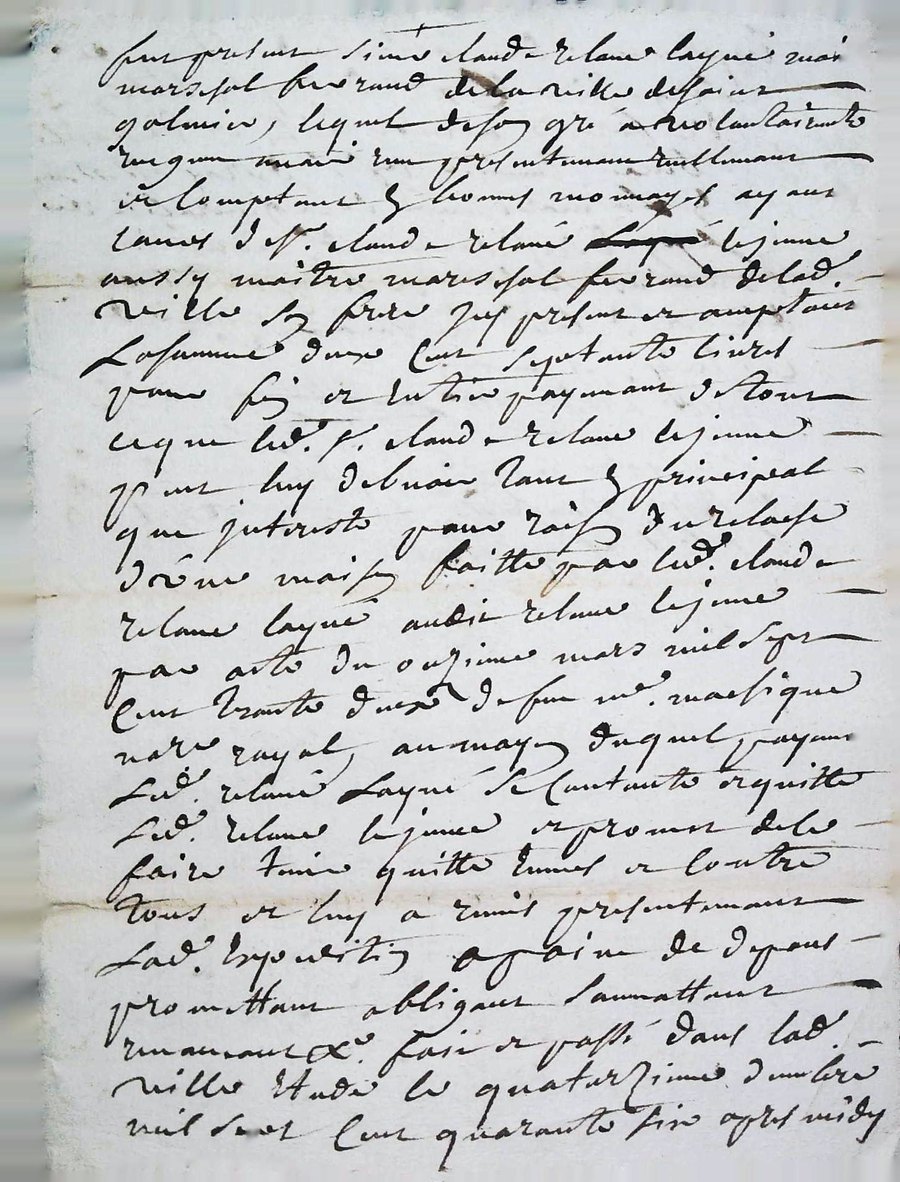 fut present sieur claude relave layné mai
mareschal ferrand de la ville de saint
galmier, lequel de son gré a volontairemt
recquu presentement reellement
et comptant en bonnes monnoyes ayant
cours de sr. claude relave le jeune
aussy maitre mareschal ferrand de lad.
ville son frere icy present et acceptant
La somme deux cent septante livres
pour fin et entier payement de tout
ce que led. sr. claude relave le jeune
peut luy debvoir tant en principal
que interests pour raison du relache
d'une maison faitte par led. claude
relave layné audit relave le jeune
par acte du onzieme mars mil sept
cent trante deux defun me.
nore royal, au moyen duquel payemt
Led. relave Layné se contante et quitte
Led. relave le jeune et promet de le
faire tenir quitte envers et contre
tous et luy a remis presentement
Lad. expedition a paine de depans
promettant obligeant soumettant
renoncant &c. fait et passé dans lad.
ville etude le quatorzieme
mil sept cent quarante six apres midy